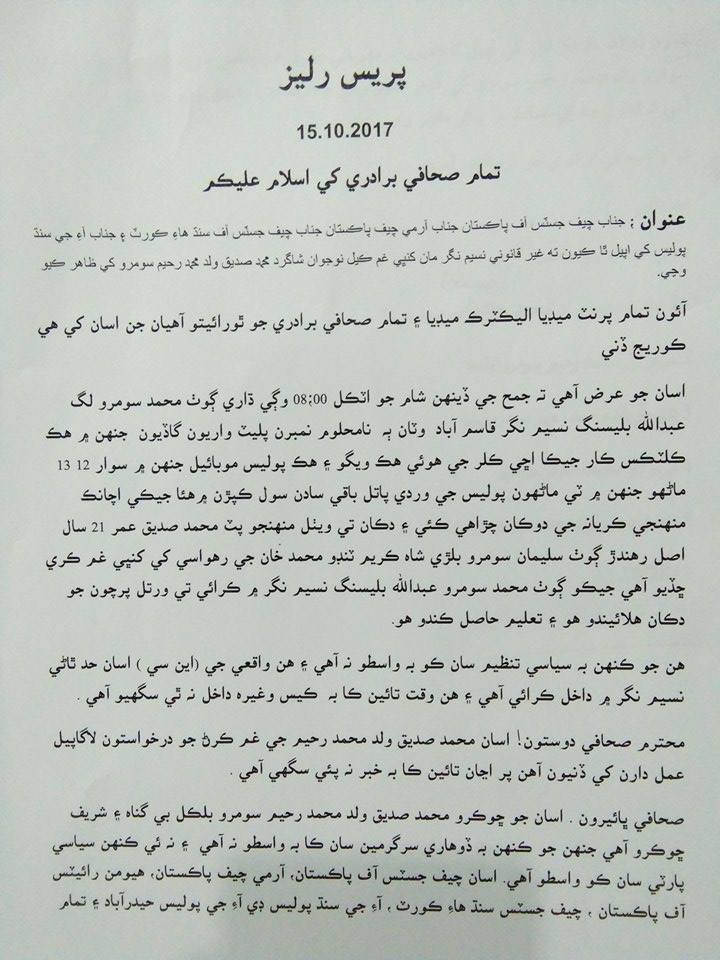 پريس رليز
15.10.2017
تمام صحافي برادري کي اسلام عليڪم
عنوان ؛ جناب چيف جسٽس آف پاڪستان جناب آرمي چيف پاڪستان جناب چيف جسٽس آف سنڌ هاءِ ڪورٽ ۽ جناب آءِ جي سنڌ
پوليس کي اپيل ٿا ڪيون ته غير قانوني نسيم نگر مان کنڀي غم ڪيل نوجوان شاگرد محمد صديق ولد محمد رحيم سومرو کي ظاهر ڪيو
وڃي.
آئون تمام پرنٽ ميڊيا اليڪٽرڪ ميڊيا ۽ تمام صحافي برادري جو ٿورائيتو آهيان جن اسان کي هي
ڪوريج ڏني
اسان جو عرض آهي تہ جمح جي ڏينهن شام جو اٽڪل 08:00 وڳي ڌاري ڳوٺ محمد سومرو لڳ
عبدالله بليسنگ نسيم نگر قاسم آباد وٽان ٻہ نامحلوم نمبرن پليٽ واريون گاڏيون جنهن ۾ هڪ
ڪلٽڪس ڪار جيڪا اڇي ڪلر جي هوئي هڪ ويگو ۽ هڪ پوليس موبائيل جنهن ۾ سوار 12 13
ماڻهو جنهن ۾ ٽي ماڻهون پوليس جي وردي پاتل باقي سادن سول ڪپڙن ۾ هئا جيڪي اچانڪ
منهنجي ڪريانہ جي دوڪان چڙاهي ڪئي ۽ دڪان تي ويٺل منهنجو پٽ محمد صديق عمر 21 سال
اصل رهندڙ ڳوٺ سليمان سومرو بلڙي شاه ڪريم ٽنڊو محمد خان جي رهواسي کي کنڀي غم ڪري
ڇڏيو آهي جيڪو ڳوٺ محمد سومرو عبدالله بليسنگ نسيم نگر ۾ ڪرائي تي ورتل پرچون جو
دڪان هلائيندو هو ۽ تعليم حاصل ڪندو هو.
هن جو ڪنهن بہ سياسي تنظيم سان ڪو بہ واسطو نہ آهي ۽ هن واقعي جي (اين سي) اسان حد ٿاڻي
نسيم نگر ۾ داخل ڪرائي آهي ۽ هن وقت تائين ڪا بہ ڪيس وغيره داخل نہ ٿي سگهيو آهي .
محترم صحافي دوستون! اسان محمد صديق ولد محمد رحيم جي غم ڪرڻ جو درخواستون لاڳاپيل
عمل دارن کي ڏنيون آهن پر اڃان تائين ڪا بہ خبر نہ پئي سگهي آهي .
صحافي ڀائيرون . اسان جو ڇوڪرو محمد صديق ولد محمد رحيم سومرو بلڪل بي گناه ۽ شريف
ڇوڪرو آهي جنهن جو ڪنهن بہ ڏوهاري سرگرمين سان ڪا بہ واسطو نہ آهي ۽ نہ ئي ڪنهن سياسي
پارٽي سان ڪو واسطو آهي. اسان چيف جسٽس آف پاڪستان، آرمي چيف پاڪستان، هيومن رائيٽس
آف پاڪستان ، چيف جسٽس سنڌ هاءِ ڪورٽ ، آءِ جي سنڌ پوليس ڊي آءِ جي پوليس حيدرآباد ۽ تمام